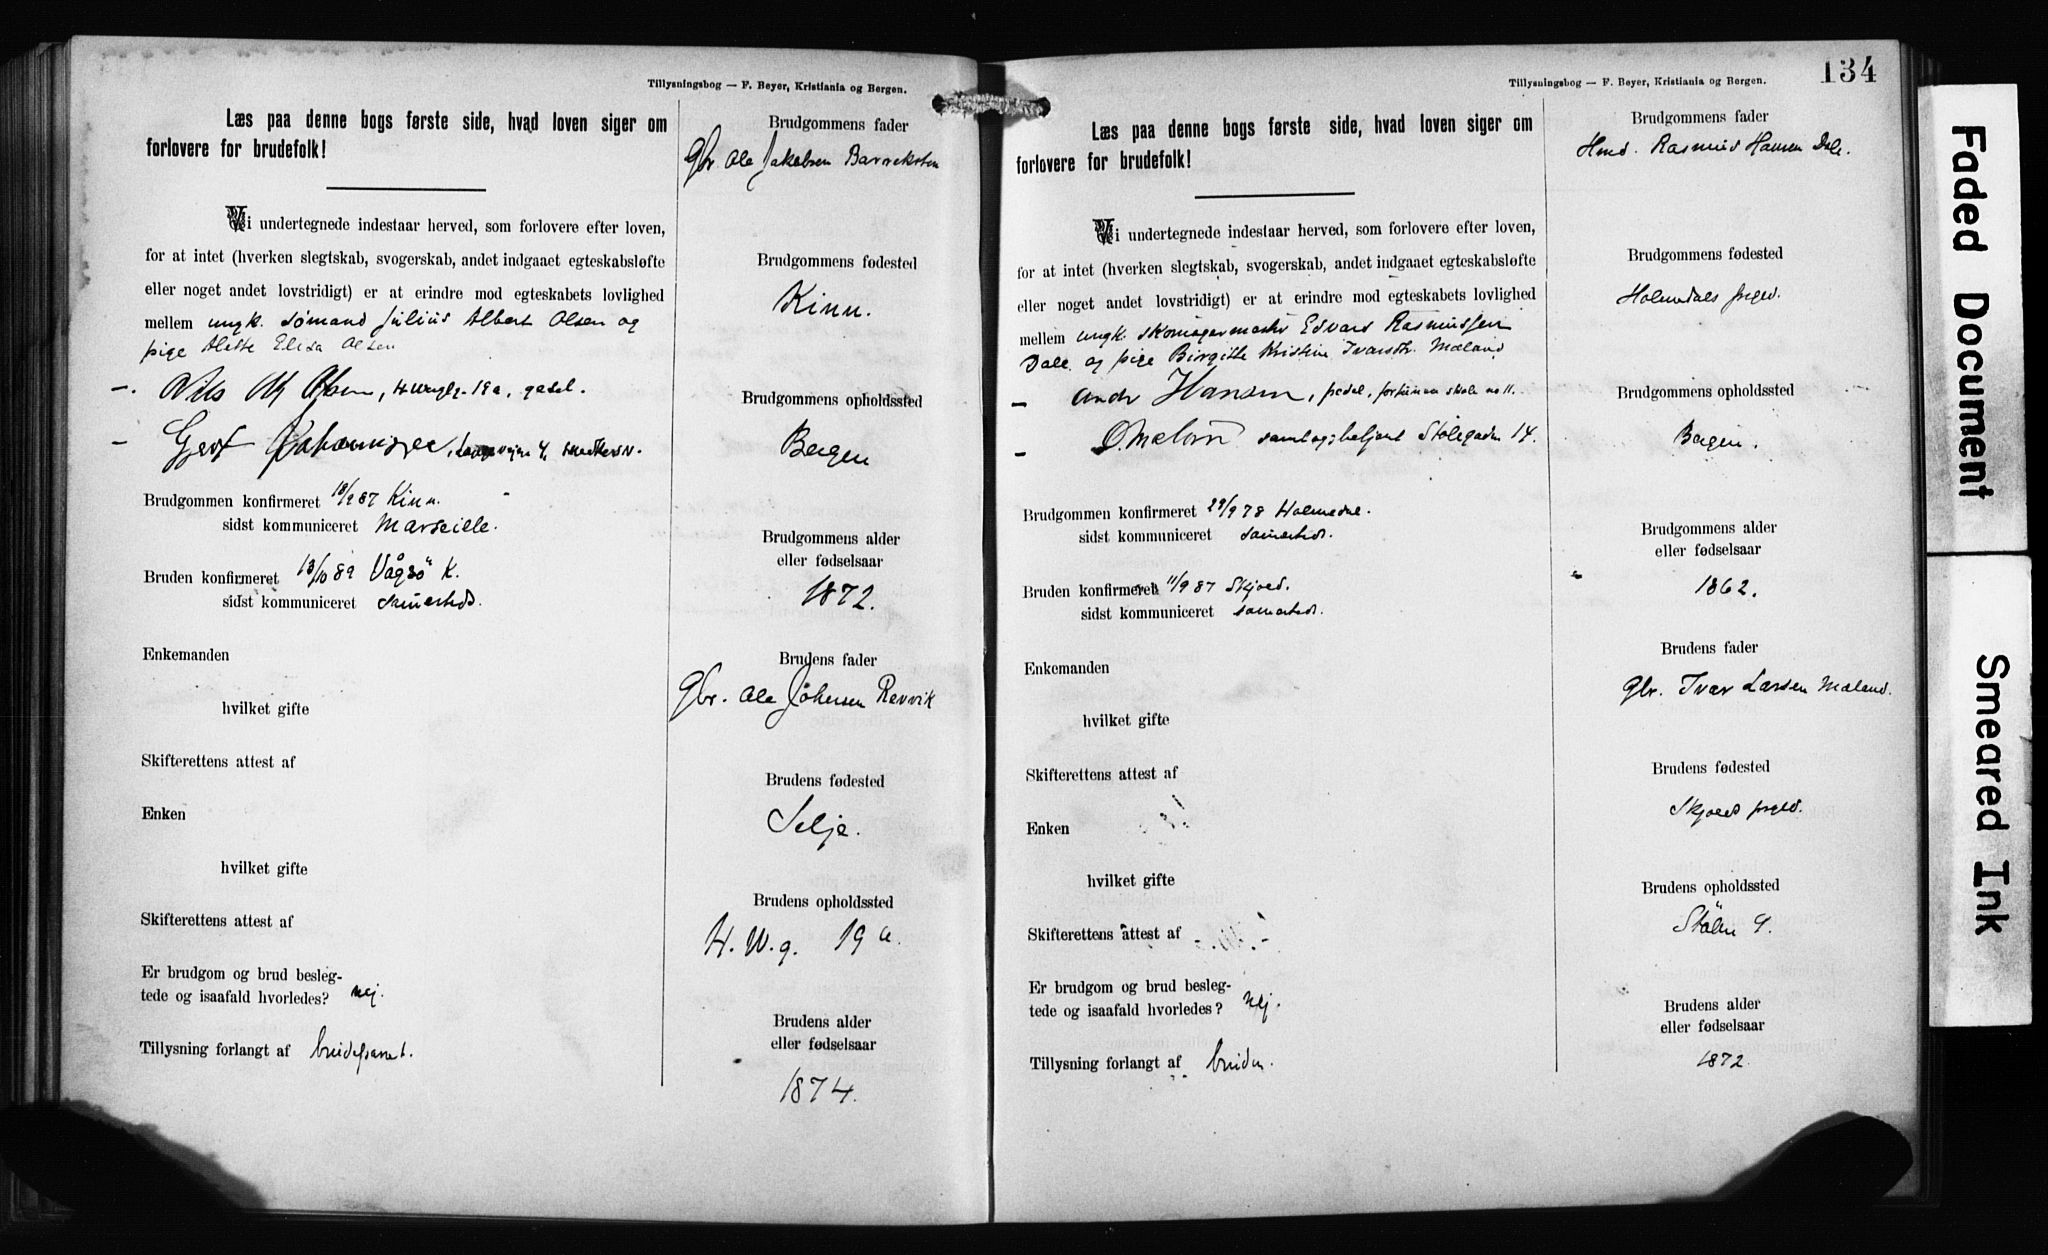 Tillysningsbog — F. Beyer, Kristiania og Bergen.
Læs paa denne bogs første side, hvad loven siger om
forlovere for brudefolk!
Vi undertegnede indestaar herved, som forlovere efter loven,
for at intet (hverken slegtskab, svogerskab, andet indgaaet egteskabsløfte
eller noget andet lovstridigt) er at erindre mod egteskabets lovlighed
mellem ungk. sømand Julius Albert Olsen og
pige Alette Elisa Olsen
Nils Olsen, 19a, gasel.
Gjert Johannissen,
Brudgommen konfirmeret 18/9 87 Kinn.
sidst kommuniceret Marseille.
Bruden konfirmeret 13/10 89 Vågsö K.
sidst kommuniceret samesteds.
Enkemanden
hvilket gifte
Skifterettens attest af
Enken
hvilket gifte
Skifterettens attest af
Er brudgom og brud besleg-
tede og isaafald hvorledes? nej.
Tillysning forlangt af brudeparret.
Brudgommens fader
Gbr. Ole Jakobsen Barreksten
Brudgommens fødested
Kinn.
Brudgommens opholdssted
Bergen
Brudgommens alder
eller fødselsaar
1872.
Brudens fader
Gbr. Ole Johensen Revvik
Brudens fødested
Selje.
Brudens opholdssted
H. W. g. 19 a.
Brudens alder
eller fødselsaar
1874.
Tillysningsbog — F. Beyer, Kristiania og Bergen.
134
Læs paa denne bogs første side, hvad loven siger om
forlovere for brudefolk!
Vi undertegnede indestaar herved, som forlovere efter loven,
for at intet (hverken slegtskab, svogerskab, andet indgaaet egteskabsløfte
eller noget andet lovstridigt) er at erindre mod egteskabets lovlighed
mellem ungk. skomagermester Edvard Rasmussen
Dale og pige Birgitte Kristine Ivarsdtr. Mæland
Andr Hansen, pedel, skole no 11.
O. Mæland Stølegaden 14.
Brudgommen konfirmeret 29/9 78 Holmedal.
sidst kommuniceret samesteds.
Bruden konfirmeret 11/9 87 Skjold.
sidst kommuniceret samesteds.
Enkemanden
hvilket gifte
Skifterettens attest af
Enken
hvilket gifte
Skifterettens attest af
Er brudgom og brud besleg-
tede og isaafald hvorledes? nej.
Tillysning forlangt af bruden.
Brudgommens fader
Hmd. Rasmus Hansen Dale.
Brudgommens fødested
Holmedals prgld.
Brudgommens opholdssted
Bergen.
Brudgommens alder
eller fødselsaar
1862.
Brudens fader
Gbr. Ivar Larsen Mæland.
Brudens fødested
Skjolds prgld.
Brudens opholdssted
Stölen 9.
Brudens alder
eller fødselsaar
1872.
Faded Document
Smeared Ink